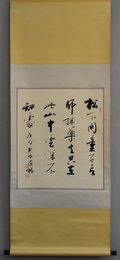 松下問童子言
師採藥去只在
此山中雲深不
知處